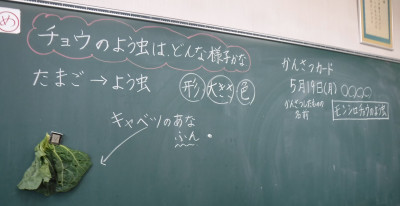 め
チョウのよう虫は、どんな様子かな
たまご→よう虫
形 大きさ 色
キャベツのあな
ふん
かんさつカード
5月19日(月) ○○○○
かんさつしたものの名前
モンシロチョウのよう虫